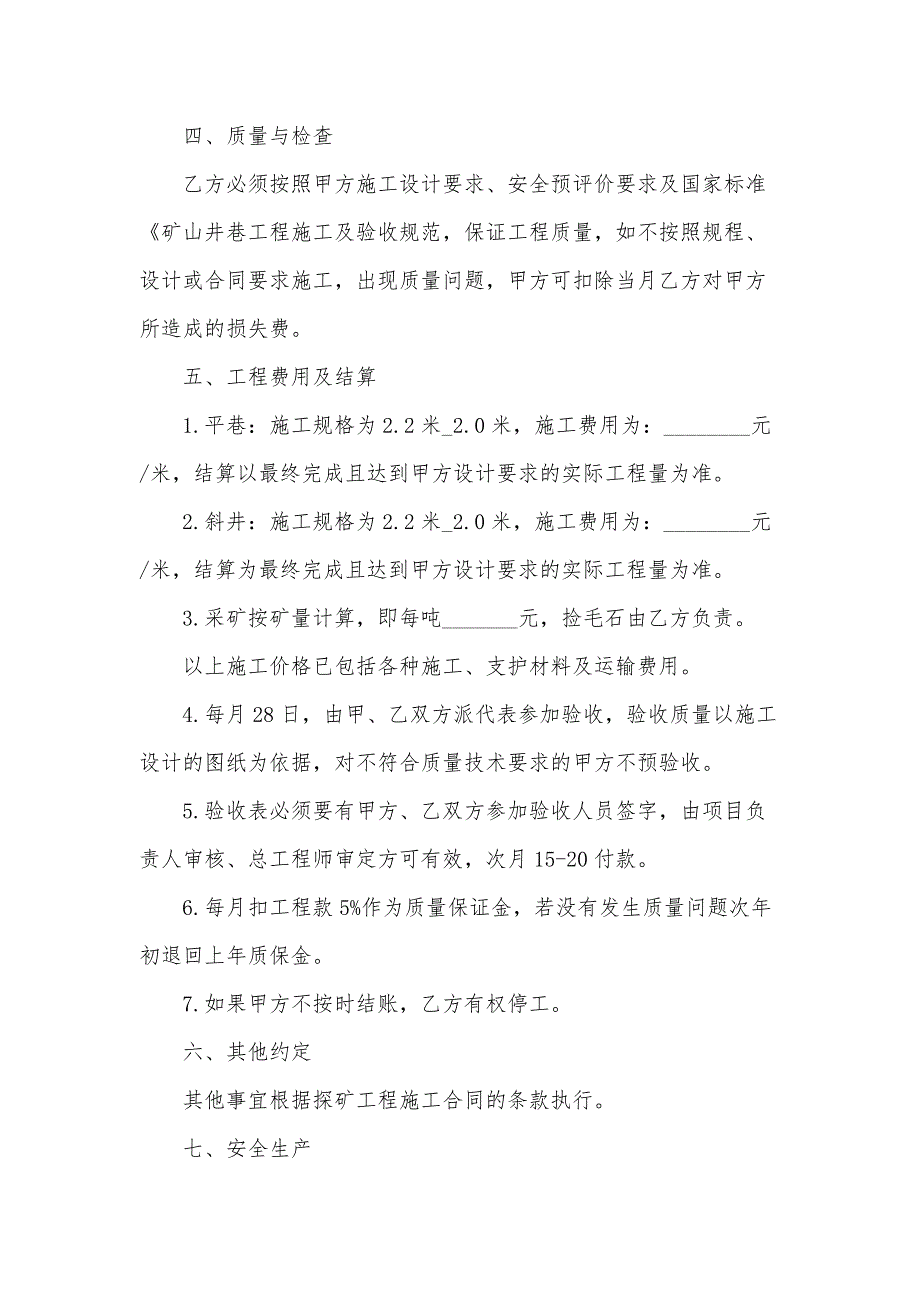 四、质量与检查
乙方必须按照甲方施工设计要求、安全预评价要求及国家标准
《矿山井巷工程施工及验收规范，保证工程质量，如不按照规程、
设计或合同要求施工，出现质量问题，甲方可扣除当月乙方对甲方
所造成的损失费。
五、工程费用及结算
1.平巷：施工规格为 2.2 米_2.0 米，施工费用为：________元
/米，结算以最终完成且达到甲方设计要求的实际工程量为准。
2.斜井：施工规格为 2.2 米_2.0 米，施工费用为：________元
/米，结算为最终完成且达到甲方设计要求的实际工程量为准。
3.采矿按矿量计算，即每吨_______元，捡毛石由乙方负责。
以上施工价格已包括各种施工、支护材料及运输费用。
4.每月 28 日，由甲、乙双方派代表参加验收，验收质量以施工
设计的图纸为依据，对不符合质量技术要求的甲方不预验收。
5.验收表必须要有甲方、乙双方参加验收人员签字，由项目负
责人审核、总工程师审定方可有效，次月 15-20 付款。
6.每月扣工程款 5%作为质量保证金，若没有发生质量问题次年
初退回上年质保金。
7.如果甲方不按时结账，乙方有权停工。
六、其他约定
其他事宜根据探矿工程施工合同的条款执行。
七、安全生产